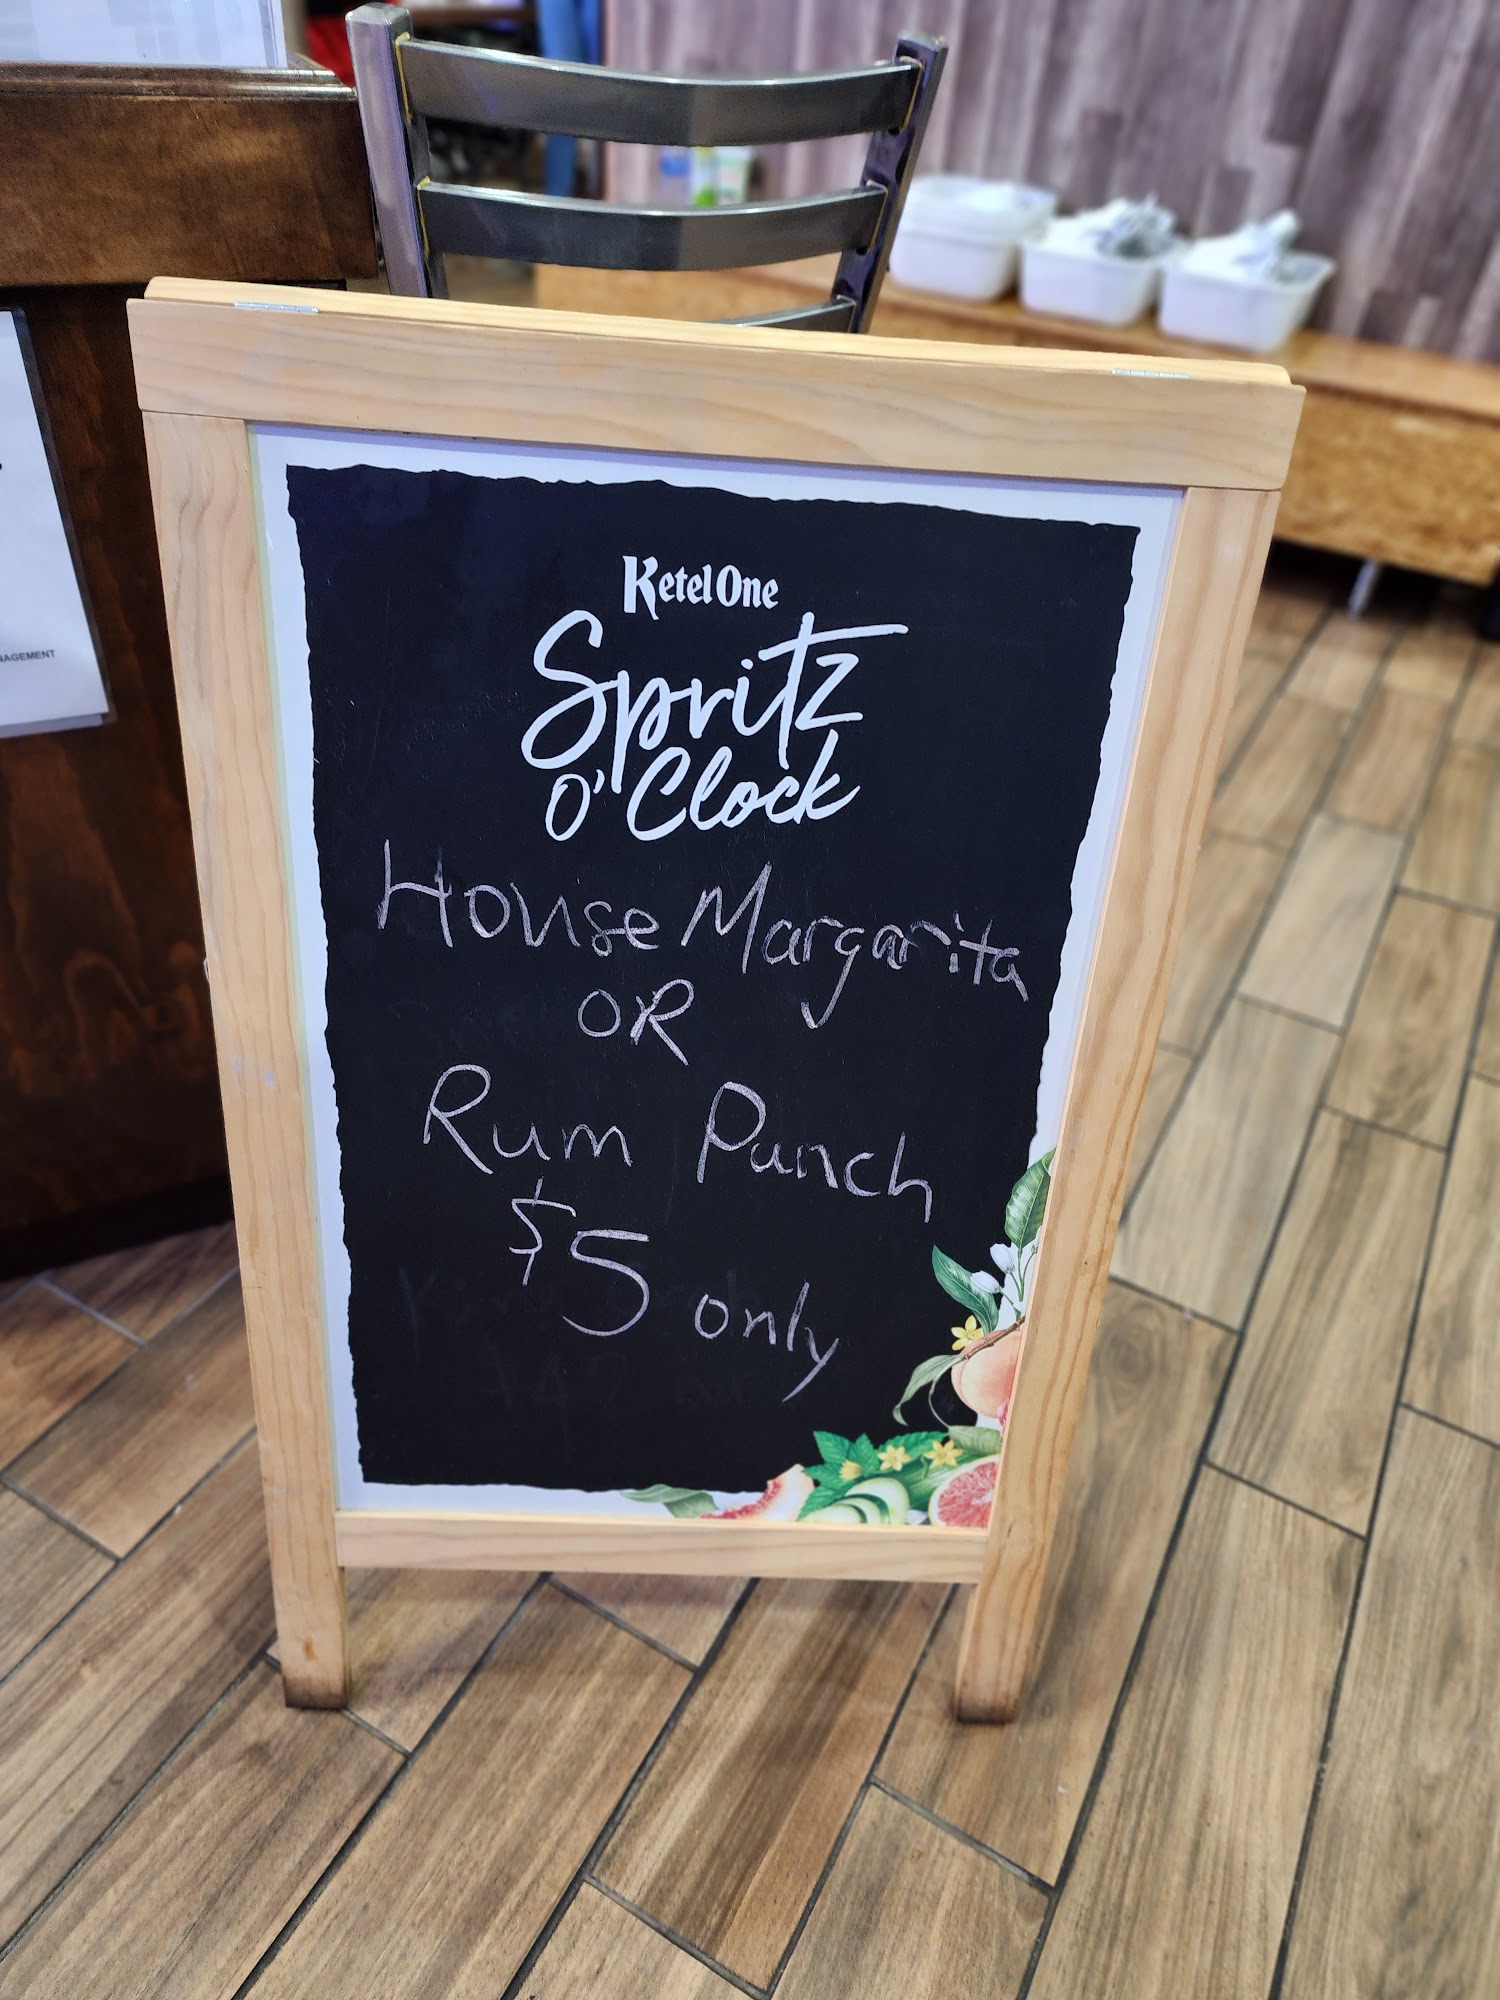 NAGEMENT
Ketel One
Spritz
O'Clock
House Margarita
OR
Rum Punch
$5 only